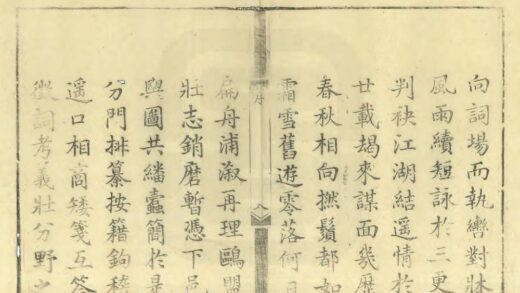 向詞場而執轡對牀
風雨續短詠於三更
判袂江湖結遥情於
廿載朅來謀面幾厯
春秋相向撫鬚都如
霜雪舊遊零落何日
序
八
扁舟浦溆再理鷗盟
壯志銷磨暫憑下邑
輿圖共繙蠹簡於是
分門排纂按籍鉤稽
遥口相商矮箋互答
徴詞考義壯分野之